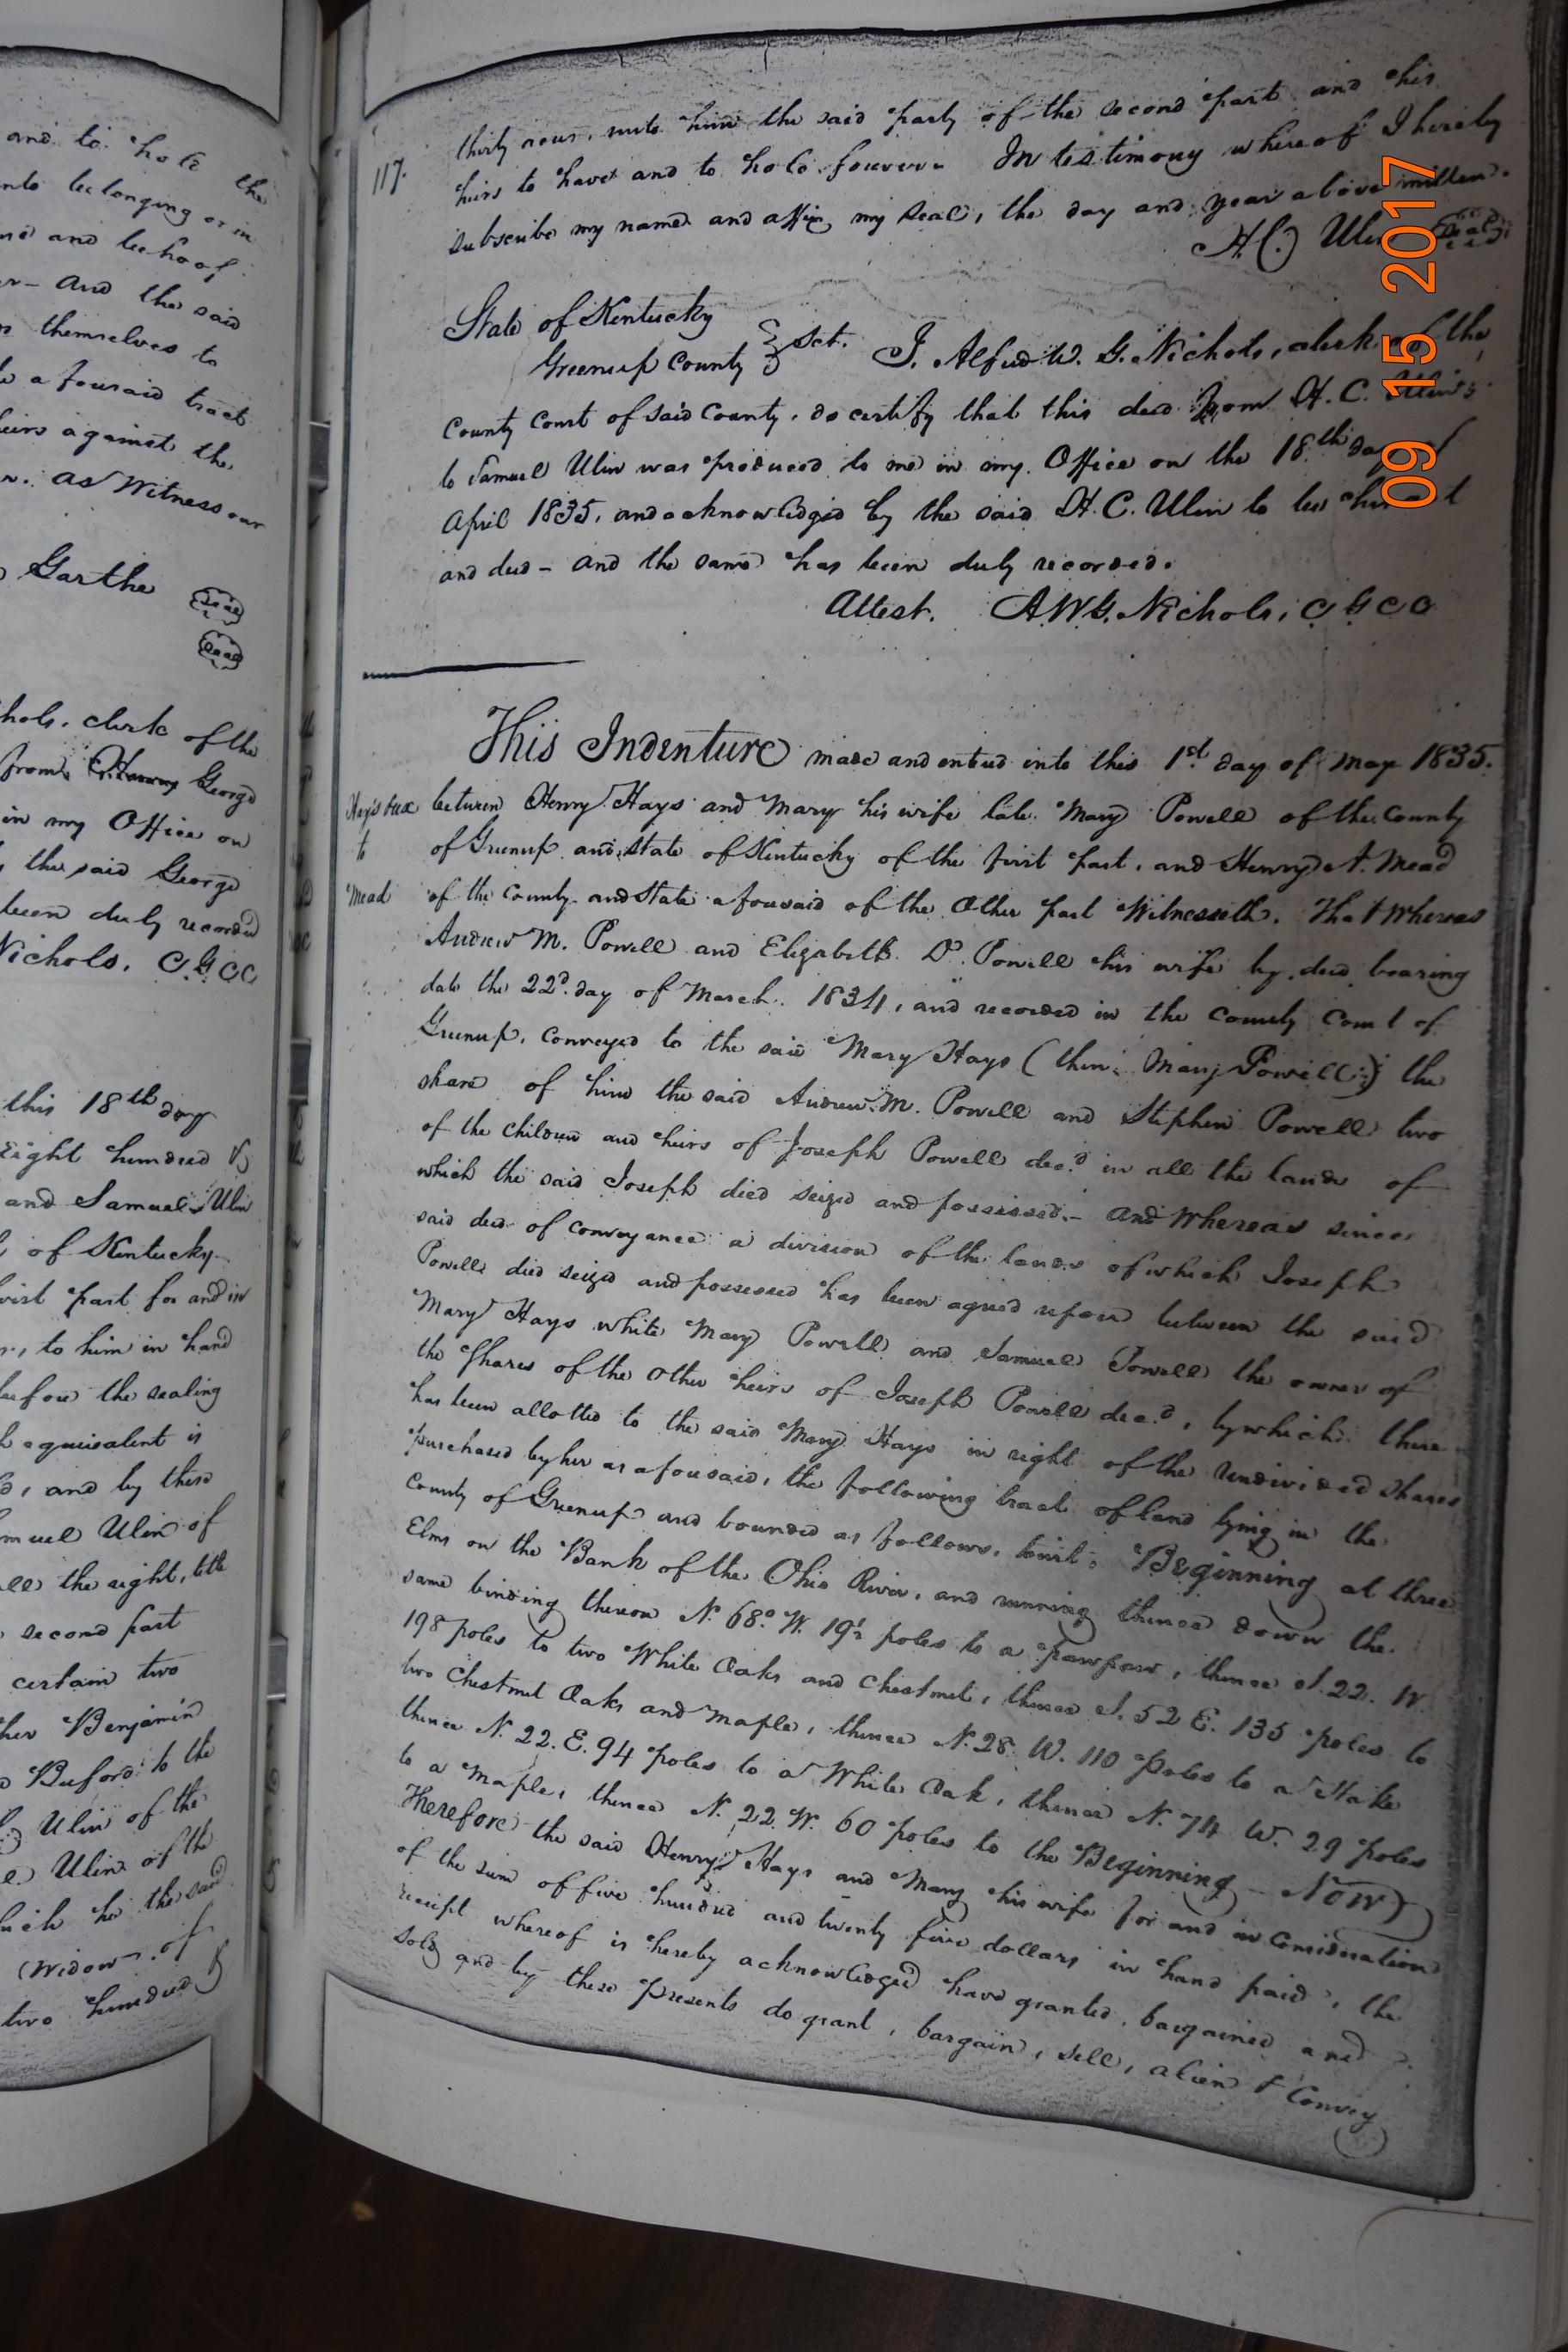 and to hold the
nto belonging or in
and behoof
r - And the said
themselves to
a foresaid tract
heirs against the
As Witness our
Garthe
Seal
Seal
hols, clerk of the
from George
in my Office on
the said George
been duly recorded
Nichols, C G C C
this 18th day
Eight hundred &
and Samuel Ulin
of Kentucky
first part for and in
to him in hand
before the sealing
equivalent is
and by these
muel Ulin of
the right, title
second part
certain two
her Benjamin
Buford to the
Ulin of the
Ulin of the
which he the said
(Widow of
two hundred &
117.
thirty acres, unto him the said party of the second part and his
heirs to have and to hold forever. In testimony whereof I hereby
subscribe my name and affix my seal, the day and year above written.
H C Ulin Seal
State of Kentucky
Greenup County } Sct. I, Alfred W. G. Nichols, clerk of the
County Court of said County, do certify that this deed from H. C. Ulin
to Samuel Ulin was produced to me in my Office on the 18th day of
April 1835, and acknowledged by the said H. C. Ulin to be his act
and deed - and the same has been duly recorded.
Attest. A.W.G. Nichols, C G C C
This Indenture made and entered into this 1st day of May 1835.
Hays &ux
to
Mead
between Henry Hays and Mary his wife late Mary Powell of the County
of Greenup and State of Kentucky of the first part, and Henry A. Mead
of the County and State aforesaid of the Other part Witnesseth. That Whereas
Andrew M. Powell and Elizabeth D. Powell his wife by deed bearing
date the 22d day of March 1834, and recorded in the County Court of
Greenup, conveyed to the said Mary Hays (then Mary Powell) the
share of him the said Andrew M. Powell and Stephen Powell two
of the children and heirs of Joseph Powell dec.d in all the lands of
which the said Joseph died seized and possessed. - And Whereas since
said deed of conveyance a division of the lands of which Joseph
Powell died seized and possessed has been agreed upon between the said
Mary Hays while Mary Powell and Samuel Powell the owner of
the Shares of the other heirs of Joseph Powell dec.d, by which there
has been allotted to the said Mary Hays in right of the undivided shares
purchased by her as aforesaid, the following tract of land lying in the
County of Greenup and bounded as follows, towit: Beginning at three
Elms on the Bank of the Ohio River, and running thence down the
same binding thereon N. 68° W. 19½ poles to a pawpaw, thence S. 22. W.
198 poles to two White Oaks and Chestnut, thence S. 52 E. 135 poles to
two Chestnut Oaks and Maple, thence N. 28. W. 110 Poles to a Stake
thence N. 22. E. 94 poles to a White Oak, thence N. 74 W. 29 poles
to a Maple, thence N. 22. W. 60 poles to the Beginning - Now
Therefore the said Henry Hays and Mary his wife for and in Consideration
of the sum of five hundred and twenty five dollars in hand paid, the
receipt whereof is hereby acknowledged have granted, bargained and
sold and by these presents do grant, bargain, sell, alien & Convey
09 15 2017